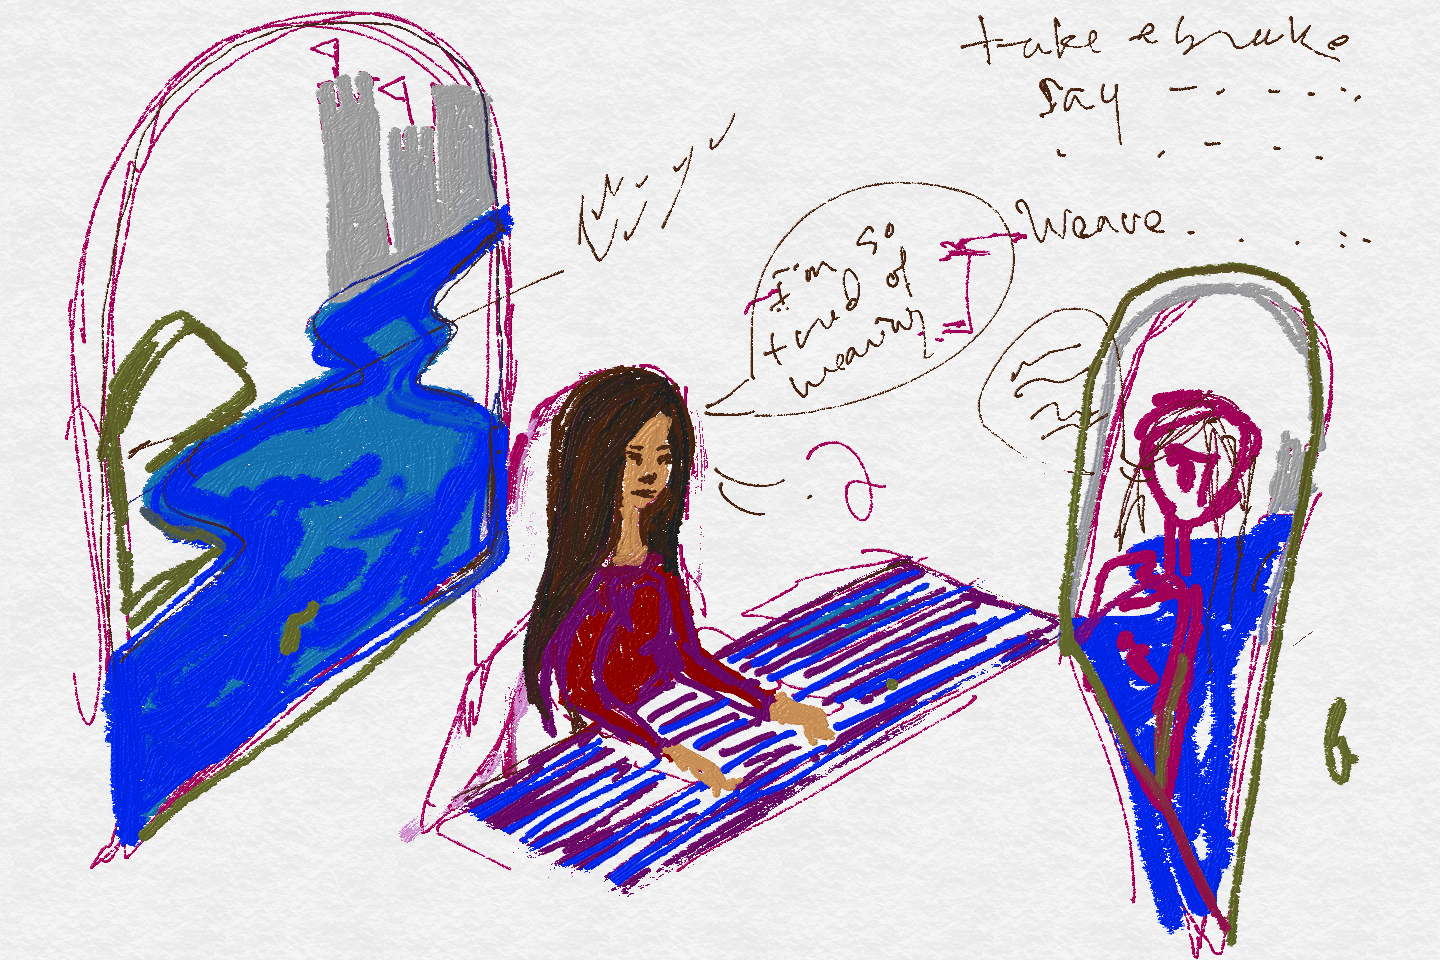 take a brake
say
weave
I'm so
tired of
weaving